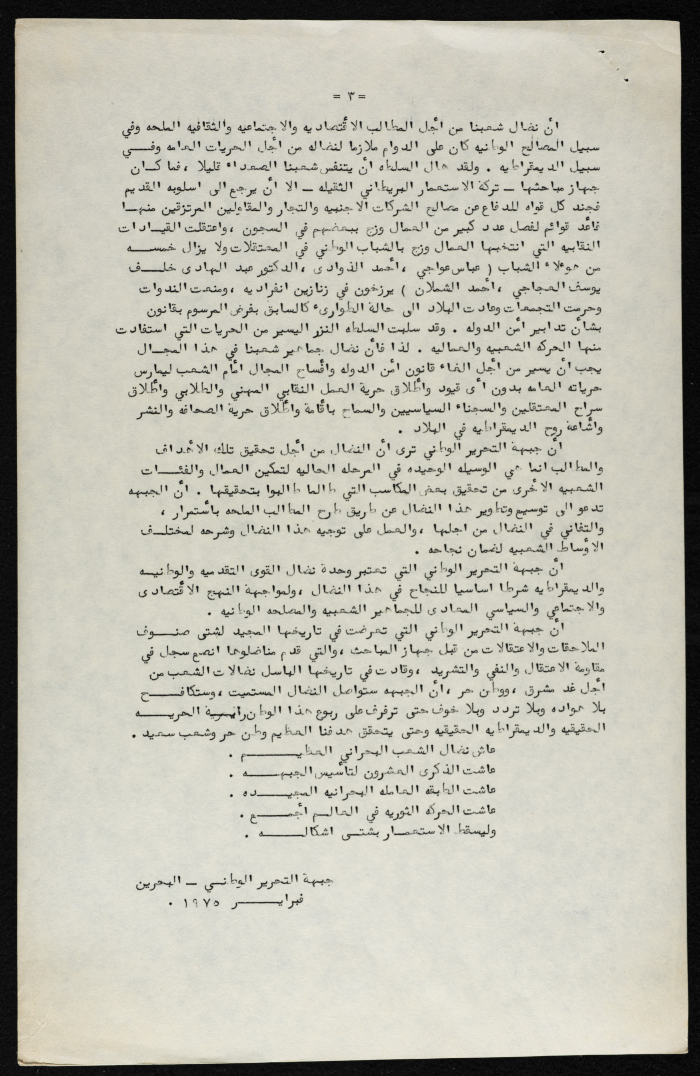 = ٣ =
أن نضال شعبنا من أجل المطالب الاقتصاديه والاجتماعيه والثقافيه الملحه وفي
سبيل المصالح الوطنيه كان على الدوام ملازما لنضاله من أجل الحريات العامه وفـــي
سبيل الديمقراطيه . ولقد هال السلطه أن يتنفس شعبنا الصعداء قليلا ، فما كـــان
جهاز مباحثها ــ تركة الاستعمار البريطاني الثقيله ــ الا أن يرجع الى اسلوبه القديم
فجند كل قواه للدفاع عن مصالح الشركات الاجنبيه والتجار والمقاولين المرتزقين منهـــا
فأعد قوائم لفصل عدد كبير من العمال وزج ببعضهم في السجون ، واعتقلت القيـــادات
النقابيه التي انتخبها العمال وزج بالشباب الوطني في المعتقلات ولا يزال خمســـه
من هوءلاء الشباب ( عباس عواجي ، أحمد الذوادى ، الدكتور عبد الهادى خلـــف
يوسف العجاجي ، أحمد الشملان ) يرزخون في زنازين انفراديه ، ومنعت الندوات
وحرمت التجمعات وعادت البلاد الى حالة الطوارىء كالسابق بفرض المرسوم بقانون
بشأن تدابير أمن الدوله . وقد سلبت السلطه النزر اليسير من الحريات التي استفادت
منها الحركه الشعبيه والعماليه . لذا فأن نضال جماهير شعبنا في هذا المجـــال
يجب أن يسير من أجل الغاء قانون أمن الدوله وأفساح المجال أمام الشعب ليمارس
حرياته العامه بدون أى قيود وأطلاق حرية العمل النقابي المهني والطلابي وأطلاق
سراح المعتقلين والسجناء السياسيين والسماح بأقامة وأطلاق حرية الصحافه والنشر
وأشاعة روح الديمقراطيه في البلاد .
أن جبهة التحرير الوطني ترى أن النضال من أجل تحقيق تلك الأهداف
والمطالب انما هي الوسيله الوحيده في المرحله الحاليه لتمكين العمال والفئـــات
الشعبيه الأخرى من تحقيق بعض المكاسب التي طالما طالبوا بتحقيقها . أن الجبهه
تدعو الى توسيع وتطوير هذا النضال عن طريق طرح المطالب الملحه بأستمرار ،
والتفاني في النضال من اجلها ، والعمل على توجيه هذا النضال وشرحه لمختلـــف
الأوساط الشعبيه لضمان نجاحه .
أن جبهة التحرير الوطني التي تعتبر وحدة نضال القوى التقدميه والوطنيـــه
والديمقراطيه شرطا اساسيا للنجاح في هذا النضال ، ولمواجهة النهج الأقتصادى
والاجتماعي والسياسي المعادى للجماهير الشعبيه والمصلحه الوطنيه .
أن جبهة التحرير الوطني التي تعرضت في تاريخها المجيد لشتى صنـــوف
الملاحقات والاعتقالات من قبل جهاز المباحث ، والتي قدم مناضلوها انصع سجل في
مقاومة الاعتقال والنفي والتشريد ، وقادت في تاريخها الباسل نضالات الشعب من
أجل غد مشرق ، ووطن حر ، أن الجبهه ستواصل النضال المستميت ، وستكافـــح
بلا هواده وبلا تردد وبلا خوف حتى ترفرف على ربوع هذا الوطن رايـــة الحريـــه
الحقيقيه والديمقراطيه الحقيقيه وحتى يتحقق هدفنا العظيم وطن حر وشعب سعيد .
عاش نضال الشعب البحراني العظيـــم .
عاشت الذكرى العشرون لتأسيس الجبهـــه .
عاشت الطبقه العامله البحرانيه المجيـــده .
عاشت الحركه الثوريه في العالـــم أجمـــع .
وليسقط الاستعمـــار بشتـــى اشكالـــه .
جبهة التحرير الوطنـــي ــ البحرين
فبرايـــر ١٩٧٥ .